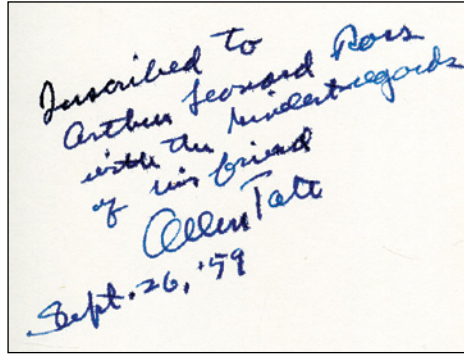 Inscribed to
Arthur Leonard Ross
with the kindest regards
of his friend
Allen Tate
Sept. 26, '59